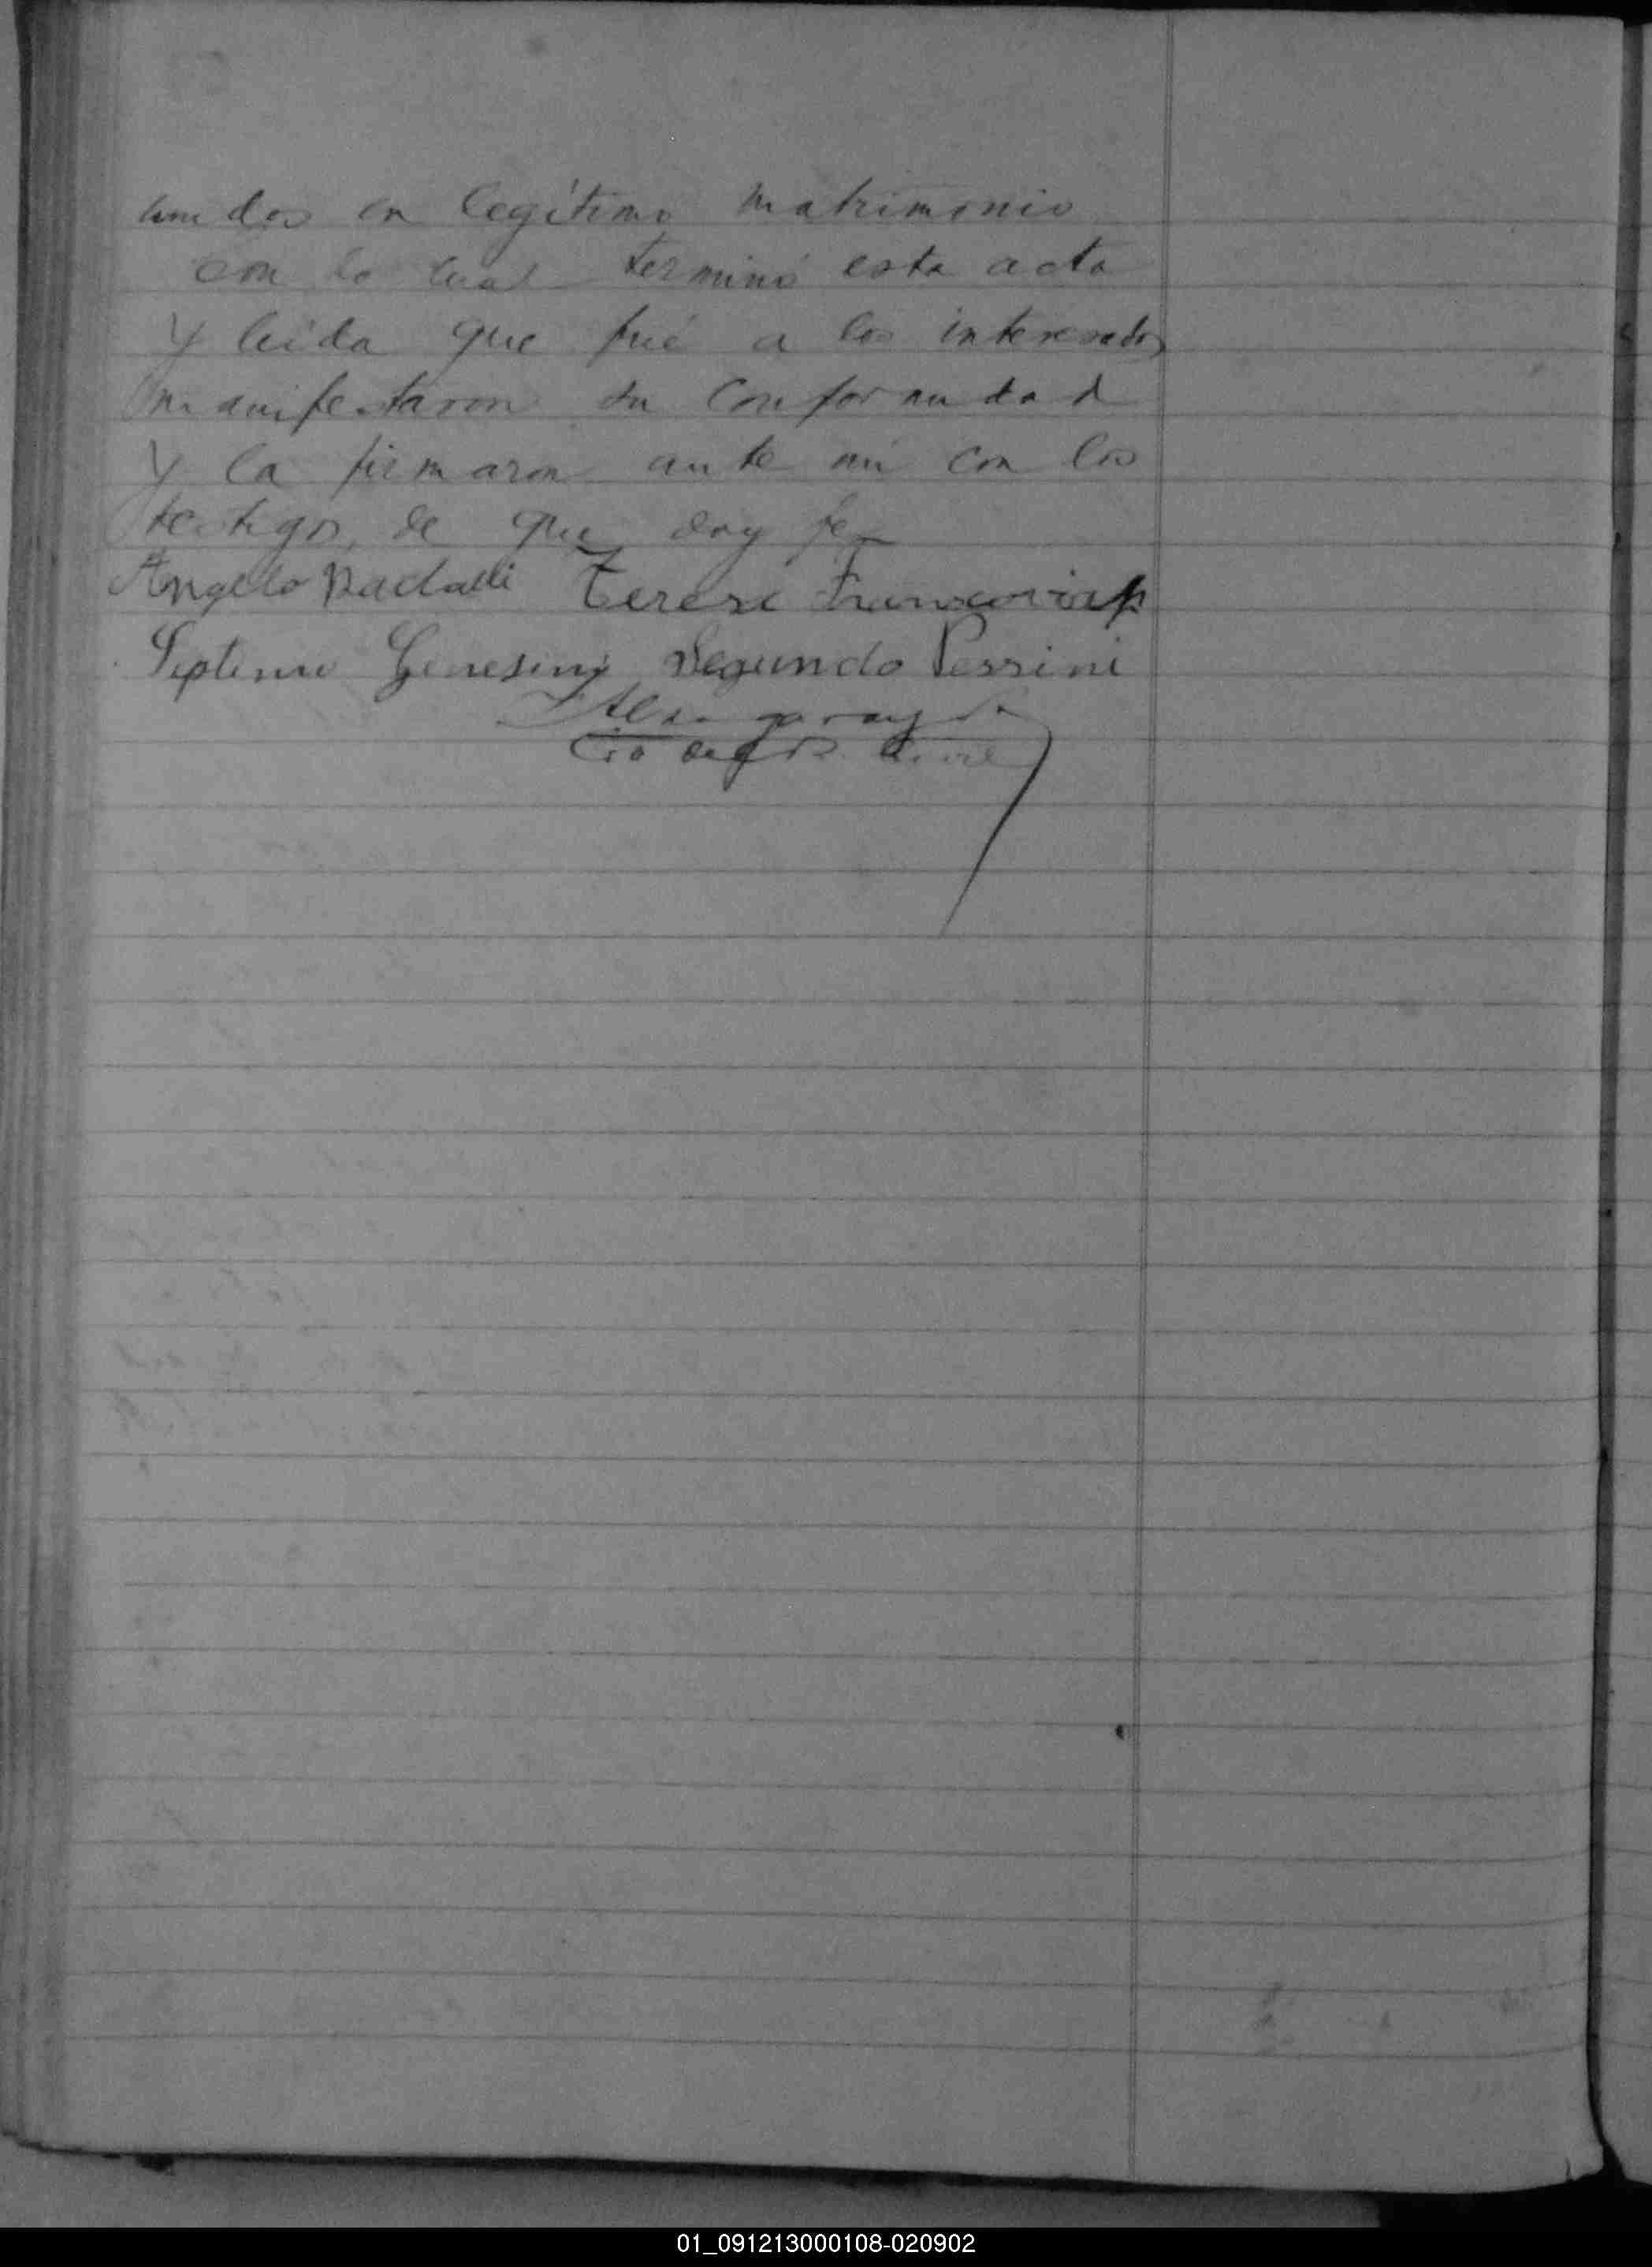 unidos en legítimo matrimonio
con lo cual terminó esta acta
y leida que fué a los interesados
manifestaron su conformidad
y la firmaron ante mí con los
testigos, de que doy fe
Angelo Terese
Septimio Genesini Segundo Pessini
civil
01_091213000108-020902